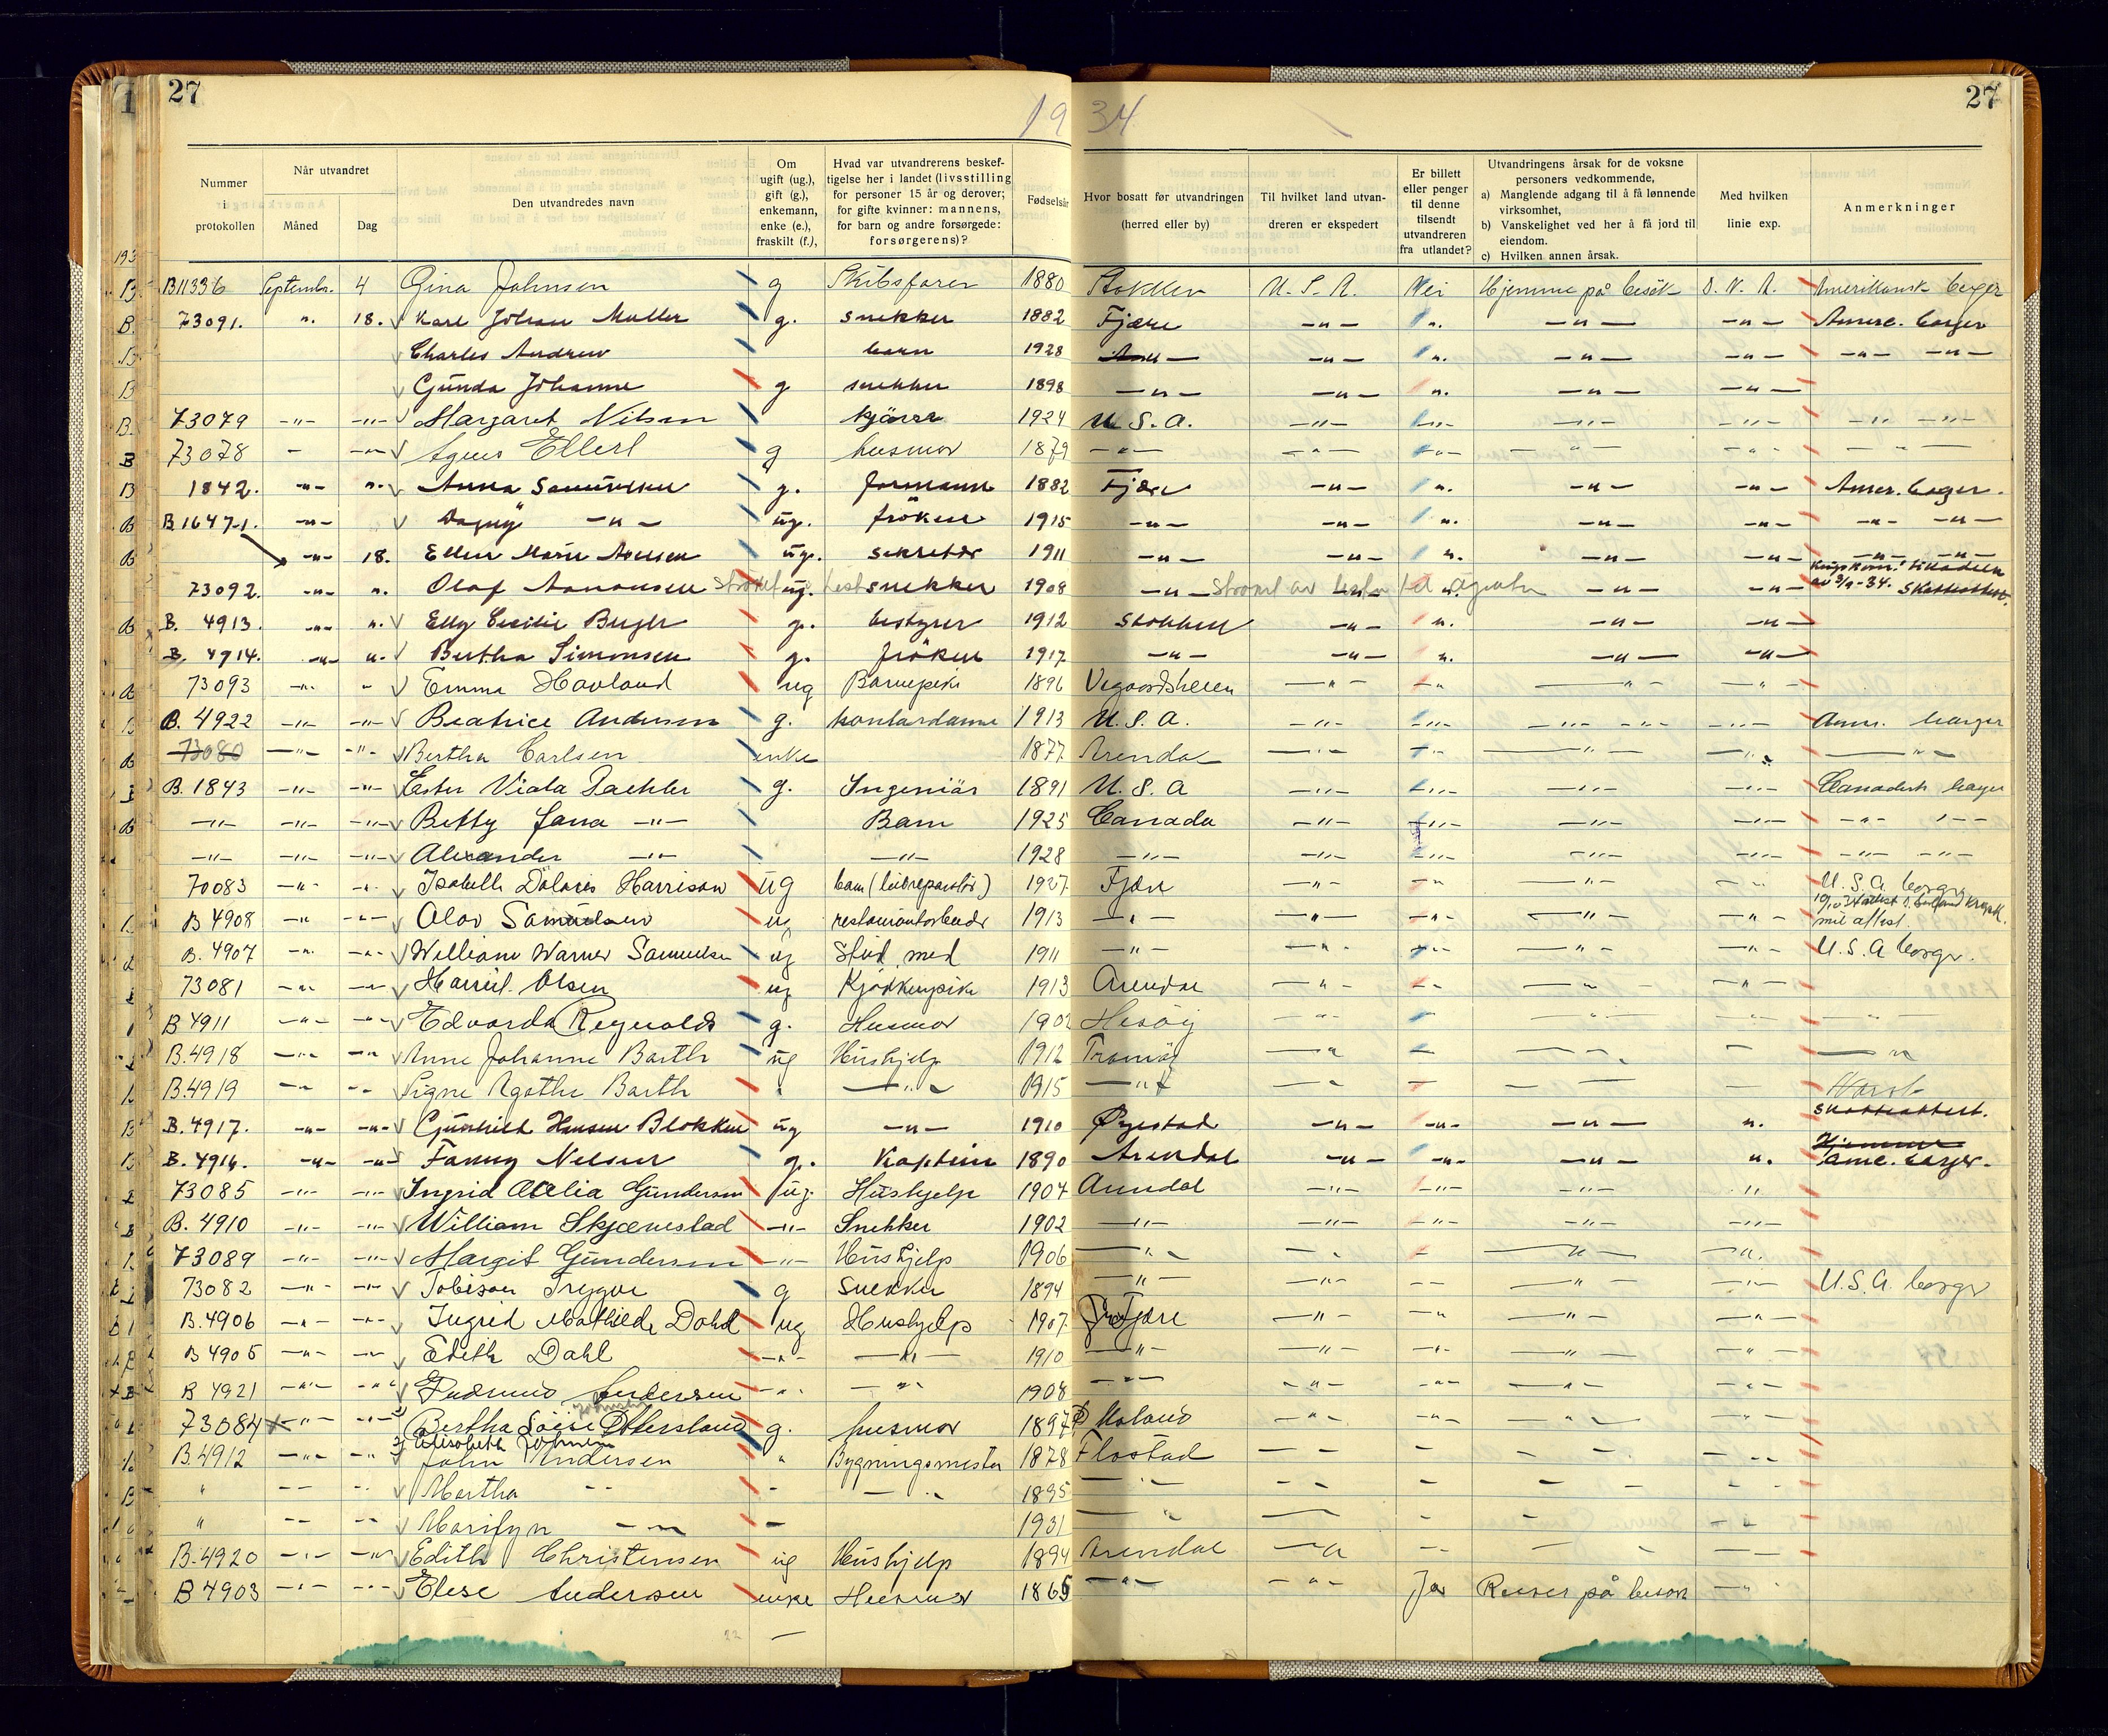 27
27
19 34
Nummer i protokollen
Når utvandret
Måned
Dag
Den utvandredes navn
Om ugift (ug.), gift (g.), enkemann, enke (e.), fraskilt (f.),
Hvad var utvandrerens beskef-tigelse her i landet (livsstilling for personer 15 år og derover; for gifte kvinner: mannens, for barn og andre forsørgede: forsørgerens)?
Fødselsår
Hvor bosatt før utvandringen (herred eller by)
Til hvilket land utvan-dreren er ekspedert
Er billett eller penger til denne tilsendt utvandreren fra utlandet?
Utvandringens årsak for de voksne personers vedkommende,
a) Manglende adgang til å få lønnende virksomhet,
b) Vanskelighet ved her å få jord til eiendom.
c) Hvilken annen årsak.
Med hvilken linie exp.
Anmerkninger
B11336 Septembr. 4 Gina Johnsen g Skibsfører 1880 Stokken U. S. A. Nei Hjemme på besök D. N. A. Amerikansk borger
73091. " 18. Karl Johan Møller g. snekker 1882 Fjære -"- ". -"- -"- Amer. borger
Charles Andrew barn 1928 -"- ". -"- -"- -"- -"-
Gunda Johanne g snekker 1898 -"- -"- ". -"- -"-
73079 -"- -"- Margaret Nilsen 1924 U. S. A. -"- -"- -"- -"- -"- -"-
73078 - -"- Agnes Ellerl g husmor 1879 -"- -"- -"- -"- -"- -"-
1842. -"- ". Anna Samuelsen g. formann 1882 Fjære -"- ". -"- -"- Amer. borger.
B 16471. -"- Dagny -"- ug. fröken 1915 -"- -"- ". -"- -"- -"- -"-
-"- 18. Ellen Marie Axelsen ug. sekretær 1911 -"- -"- ". -"- -"- -"- -"-
73092. -"- ". Olaf Aanonsen ug. snekker 1908 -"- -"- ". -"- -"- av 3/9-34. Skatteattest.
B. 4913. -"- ". Elly Cecilie Berge g. bestyrer 1912 Stokken -"- ". -"- -"-
B. 4914. -"- ". Bertha Simonsen g. fröken 1917 -"- -"- ". -"- -"-
73093 -"- " Emma Hovland ug Barnepike 1896 Vegaardsheien -"- -"- -"- -"-
B. 4922 -"- -"- Beatrice Andersen g. kontordame 1913 U. S. A. -"- -"- -"- -"- -"- Amr. borger
73080 -"- -"- Bertha Carlsen enke 1877 Arendal -"- -"- -"- -"- -"-
B. 1843 -"- -"- Ester Viola Paehler g. Ingeniör 1891 U. S. A -"- -"- -"- -"- Canadisk borger
-"- -"- -"- Betty Jana -"- Barn 1925 Canada -"- -"- -"- -"- -"- -"-
-"- -"- -"- Alexander -"- -"- 1928 -"- -"- -"- -"- -"- -"- -"-
70083 -"- -"- Isabelle Dolores Harrison ug barn 1927 Fjære -"- -"- -"- -"- U. S. A. borger
B 4908 -"- -"- Olav Samuelsen ug 1913 -"- -"- -"- -"- -"- mil attest.
B. 4907 -"- -"- William Warner Samuelsen ug Stud. med 1911 -"- -"- -"- -"- -"- U.S.A borger.
73081 -"- -"- Harriet Olsen ug Kjökkenpike 1913 Arendal -"- -"- -"- -"-
B 4911 -"- -"- Edvarda Reynolds g. Husmor 1902 Hisöy -"- - -"- -"- -"-
B. 4918 -"- -"- Anne Johanne Barth ug Hushjelp 1912 Tromöy -"- - -"- - -"-
B. 4919 -"- -"- Signe Agathe Barth " -"- 1915 -"- - - - -
B. 4917. -"- -"- Gunhild Hansen Blokken ug -"- 1910 Øyestad -"- -"- -"- ". Skatteattest.
B. 4916. -"- -"- Fanny Nelsen g. Kaptein 1890 Arendal -"- -"- -"- ". Hjemme amr. borger.
73085 -"- -"- Ingrid Otelia Gundersen ug. Hushjelp 1904 Arendal -"- -"- -"- "
B. 4910 -"- -"- William Skjævestad -"- Snekker 1902 -"- -"- -"- -"- -"-
73089 -"- -"- Margit Gundersen -"- Hushjelp 1906 -"- -"- - -"- -"-
73082 -"- -"- Tobisen Trygve g Snekker 1894 -"- -"- -- -"- -"- U.S.A. borger
B. 4906 -"- -"- Ingrid Mathilde Dahl ug Hushjelp 1907 Fjære -"- -"- -"- -"-
B 4905 -"- -"- Edith Dahl -"- -"- 1910 -"- -"- -"- -"- -"-
B 4921 -"- -"- Gudrun Andersen -"- -"- 1908 -"- -"- -"- -"- -"-
73084 -"- -"- Bertha Ottersland g. husmor 1897 Ø Moland -"- -"- -"- -"-
Elisabeth Johnsen
B. 4912 -"- -"- John Andersen " Bygningsmester 1878 Flostad - - - - - - -
" -"- -"- Martha -"- - -"- 1895 -"- - - - -
" -"- -"- Marilyn -"- - 1931 -"- - - - -
B. 4920 -"- -"- Edith Christensen ug Hushjelp 1894 Arendal -"- -- - -
B 4903 -"- -"- Elise Andersen enke Husmor 1865 -"- -"- Ja Reiser på besök -"-